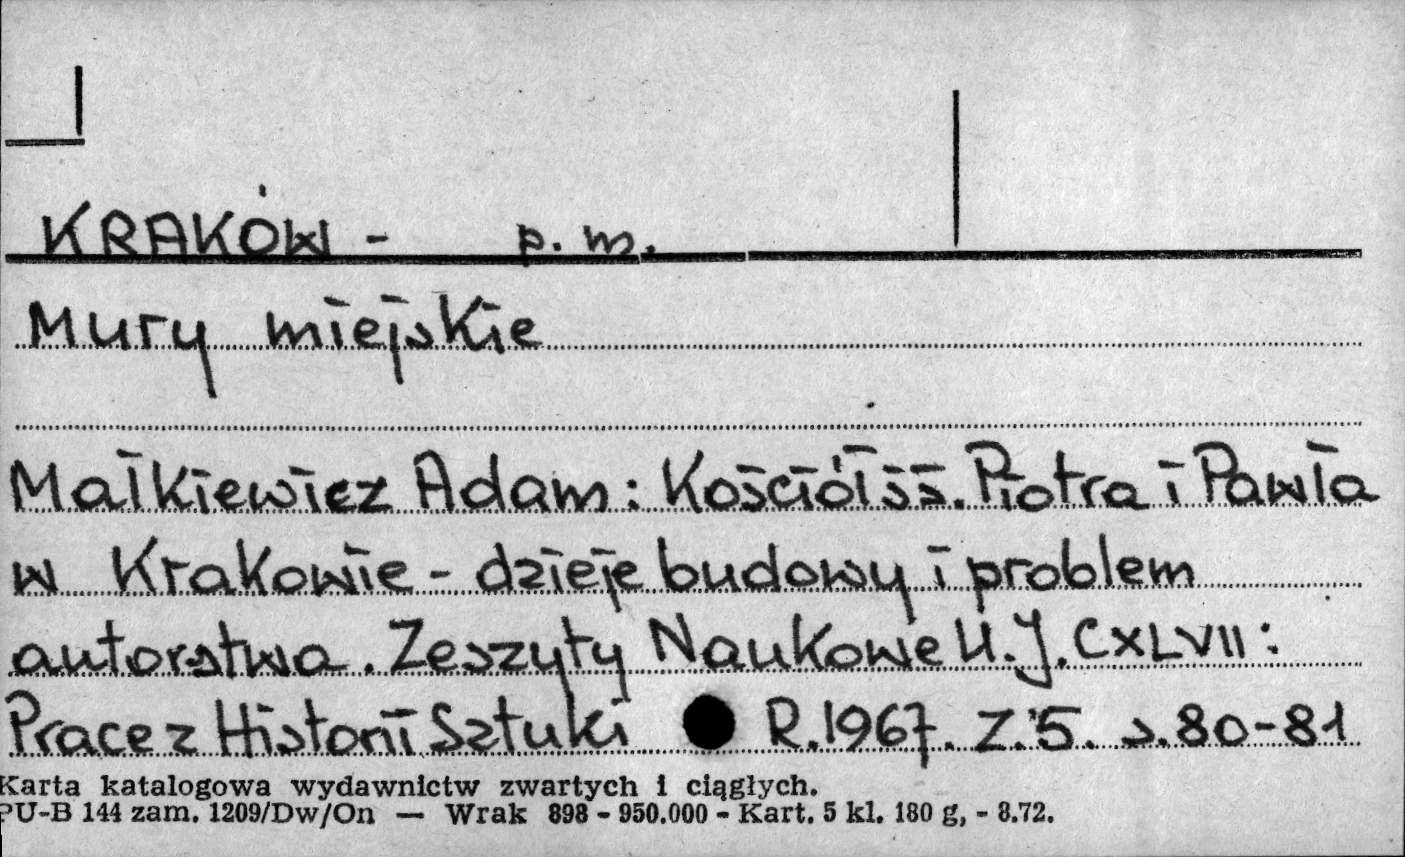 KRAKÓW - p. m.
Mury miejskie
Małkiewicz Adam: Kościół śś. Piotra i Pawła
w Krakowie - dzieje budowy i problem
autorstwa. Zeszyty Naukowe U.J. CXLVII:
Prace z Historii Sztuki R.1967. Z.5. s.80-81
Karta katalogowa wydawnictw zwartych i ciągłych.
PU-B 144 zam. 1209/Dw/On — Wrak 898 - 950.000 - Kart. 5 kl. 180 g, - 8.72.